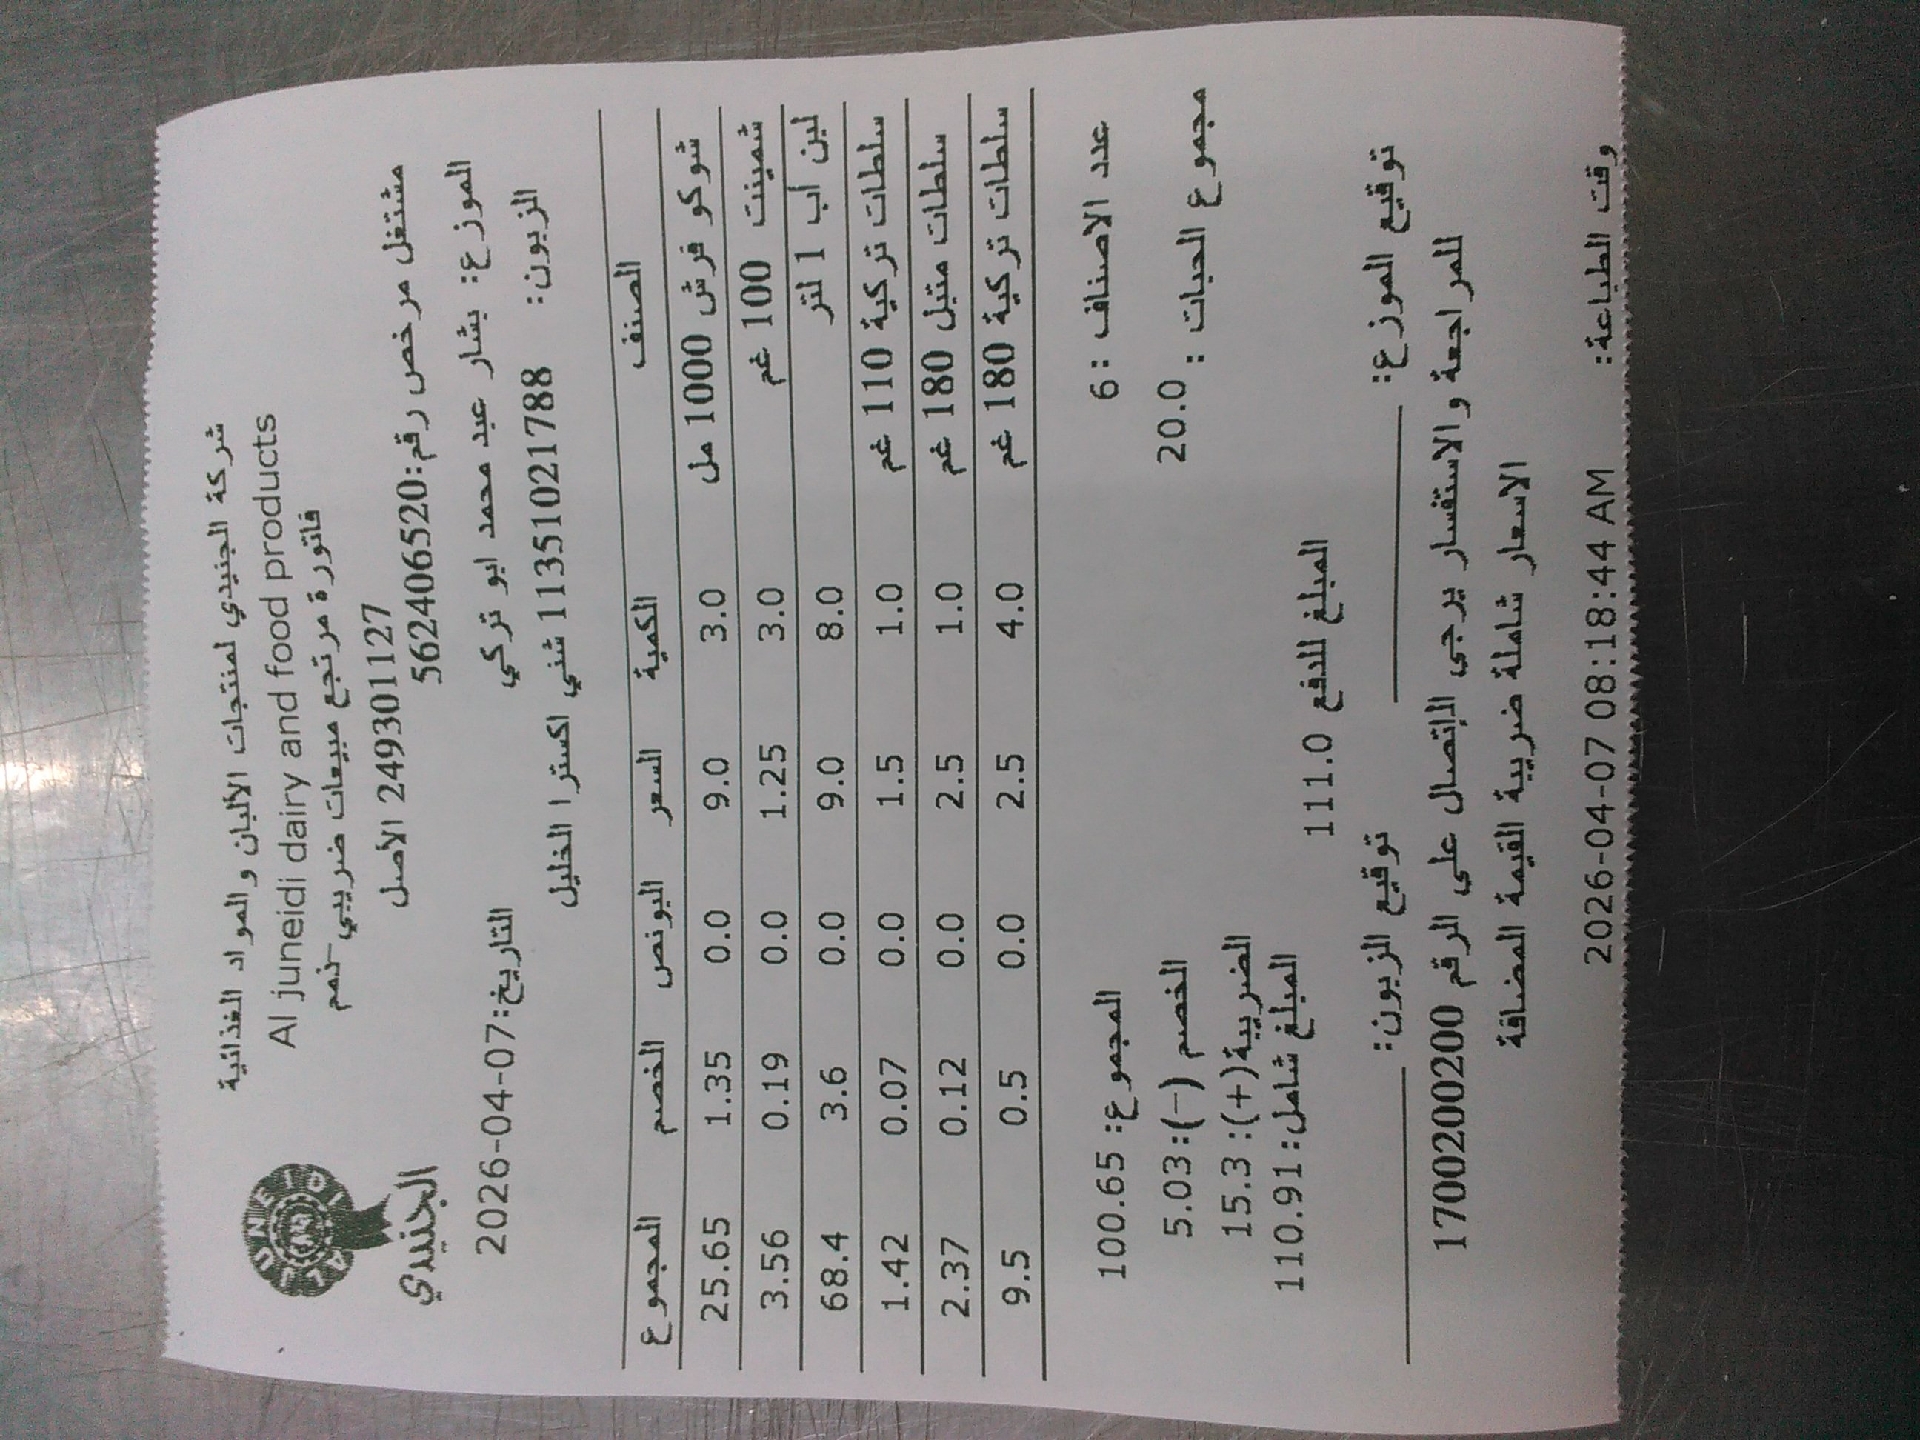 شركة الجنيدي لمنتجات الألبان والمواد الغذائية
Al juneidi dairy and food products
فاتورة مرتجع مبيعات ضريبي-ذمم
249301127 الأصل
مشتغل مرخص رقم:562406520
AL JUNEIDI
الجنيدي
الموزع: بشار عبد محمد ابو تركي
التاريخ:2026-04-07
الزبون: 11351021788 شني اكسترا الخليل
الصنف الكمية السعر البونص الخصم المجموع
شوكو فرش 1000 مل 3.0 9.0 0.0 1.35 25.65
شمينت 100 غم 3.0 1.25 0.0 0.19 3.56
لبن اب 1 لتر 8.0 9.0 0.0 3.6 68.4
سلطات تركية 110 غم 1.0 1.5 0.0 0.07 1.42
سلطات متبل 180 غم 1.0 2.5 0.0 0.12 2.37
سلطات تركية 180 غم 4.0 2.5 0.0 0.5 9.5
عدد الاصناف :6 المجموع: 100.65
مجموع الحبات : 20.0 الخصم (-):5.03
الضريبة(+): 15.3
المبلغ شامل: 110.91
المبلغ للدفع 111.0
توقيع الموزع: توقيع الزبون:
للمراجعة والاستفسار يرجى الإتصال على الرقم 1700200200
الاسعار شاملة ضريبة القيمة المضافة
وقت الطباعة: 2026-04-07 08:18:44 AM